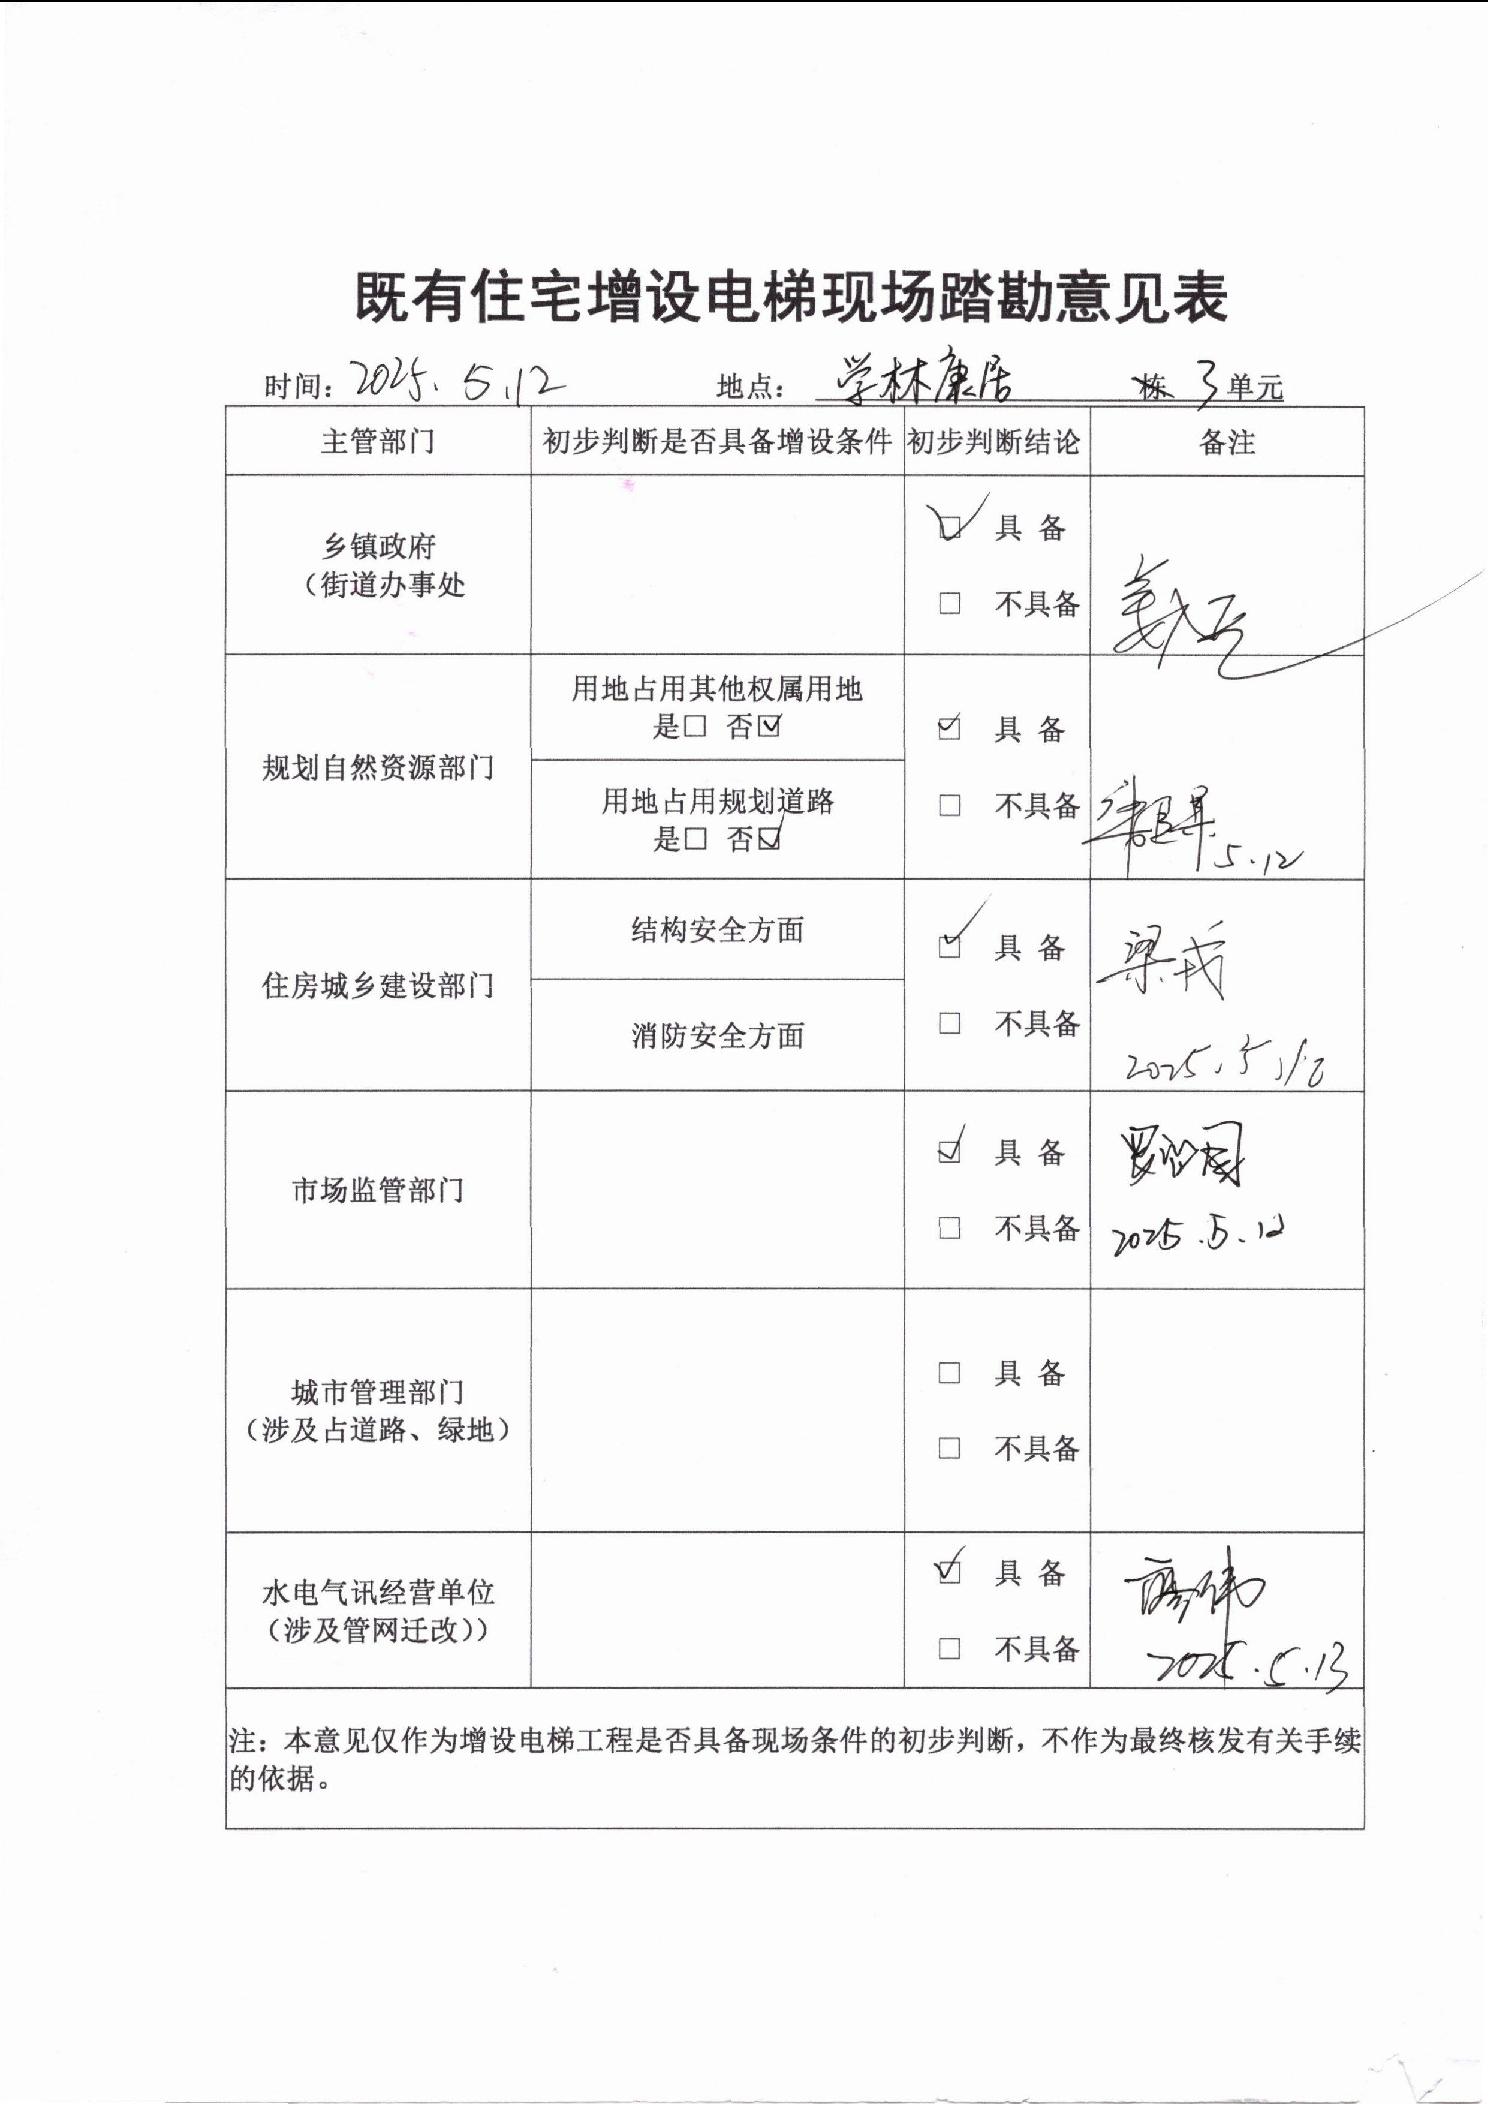 既有住宅增设电梯现场踏勘意见表
时间：2025.5.12 地点：学林康居 栋 3单元
主管部门 初步判断是否具备增设条件 初步判断结论 备注
乡镇政府
（街道办事处
☑ 具 备
□ 不具备
规划自然资源部门
用地占用其他权属用地
是□ 否☑
用地占用规划道路
是□ 否☑
☑ 具 备
□ 不具备
5.12
住房城乡建设部门
结构安全方面
消防安全方面
☑ 具 备
□ 不具备
梁
2025.5
市场监管部门
☑ 具 备
□ 不具备
罗
2025.5.12
城市管理部门
（涉及占道路、绿地）
□ 具 备
□ 不具备
水电气讯经营单位
（涉及管网迁改））
☑ 具 备
□ 不具备
廖伟
2025.5.13
注：本意见仅作为增设电梯工程是否具备现场条件的初步判断，不作为最终核发有关手续
的依据。